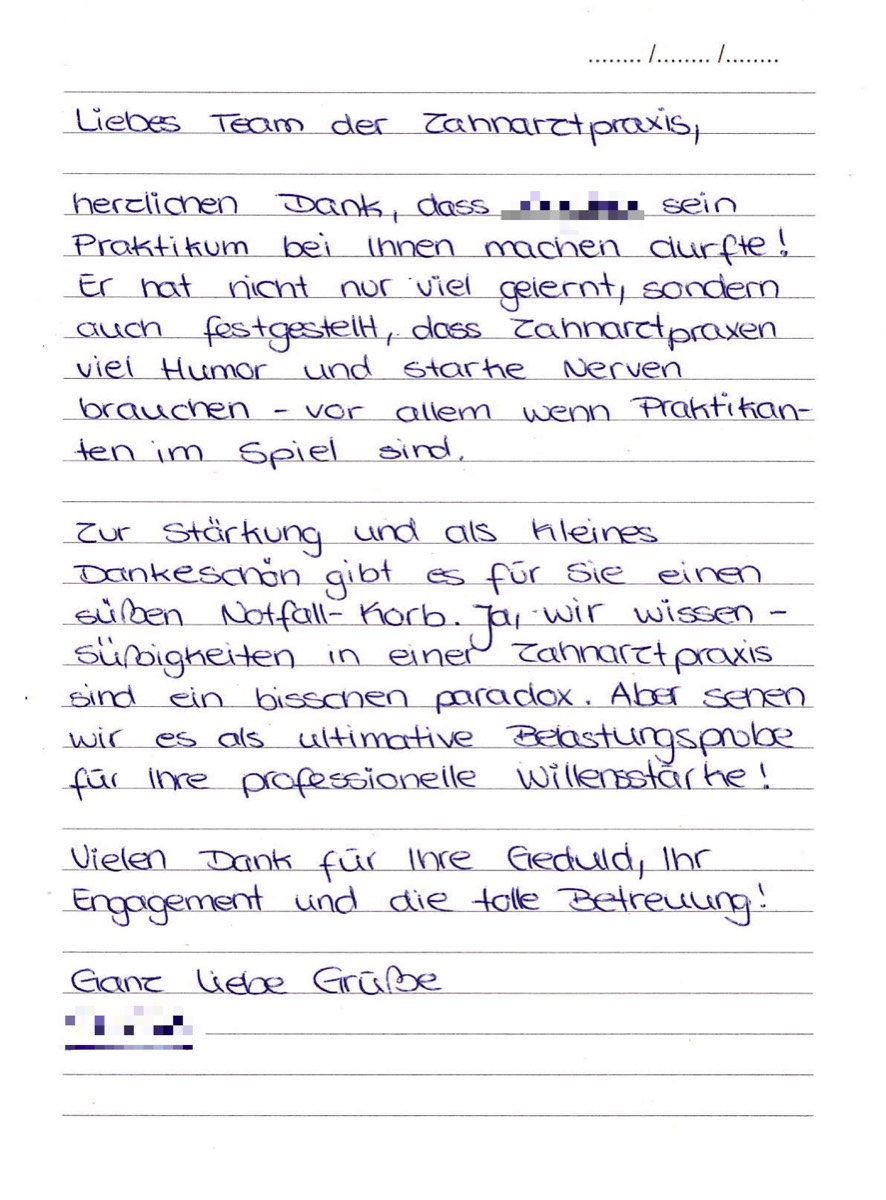 ......../......../........
Liebes Team der Zahnarztpraxis,
herzlichen Dank, dass sein
Praktikum bei Ihnen machen durfte!
Er hat nicht nur viel gelernt, sondern
auch festgestellt, dass Zahnarztpraxen
viel Humor und starke Nerven
brauchen - vor allem wenn Praktikan-
ten im Spiel sind.
Zur Stärkung und als kleines
Dankeschön gibt es für Sie einen
süßen Notfall-Korb. Ja, wir wissen -
Süßigkeiten in einer Zahnarztpraxis
sind ein bisschen paradox. Aber sehen
wir es als ultimative Belastungsprobe
für Ihre professionelle Willensstärke!
Vielen Dank für Ihre Geduld, Ihr
Engagement und die tolle Betreuung!
Ganz liebe Grüße